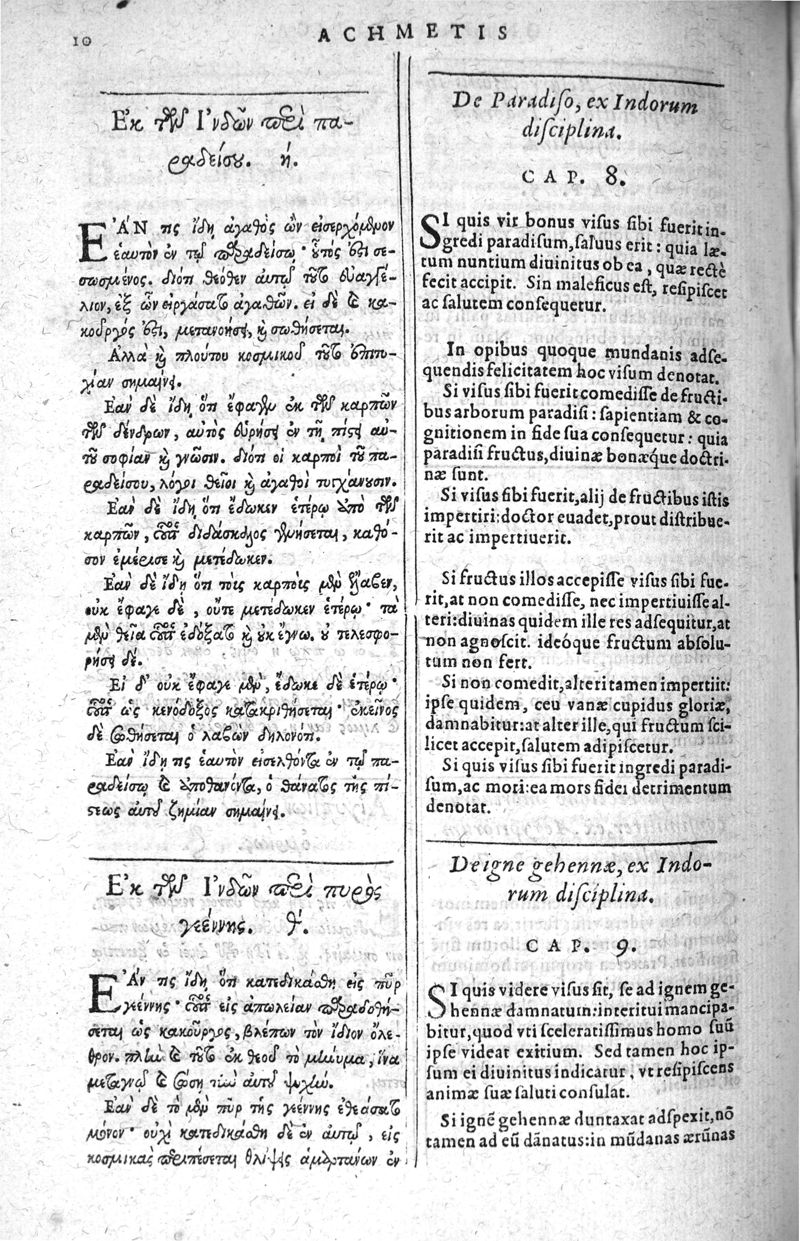 10
ACHMETIS
Ἐκ τῶν Ἰνδῶν περὶ πα-
ραδείσου. ή.
ΕἌΝ τις ἴδῃ ἀγαθὸς ὢν εἰσερχόμενον
ἑαυτὸν ἐν τῷ παραδείσῳ· οὗτός ἐστι σε-
σωσμένος. διότι θεόθεν αὐτῷ τοῦτο εὐαγγέ-
λιον, ἐξ ὧν εἰργάσατο ἀγαθῶν. εἰ δὲ καὶ κα-
κοῦργός ἐστι, μετανοήσῃ, καὶ σωθήσεται.
Ἀλλὰ καὶ πλούτου κοσμικοῦ τοῦτο ἐπιτυ-
χίαν σημαίνει.
Ἐὰν δὲ ἴδῃ ὅτι ἔφαγεν ἐκ τῶν καρπῶν
τῶν δένδρων, αὐτὸς εὑρήσει ἐν τῇ πίστει αὐ-
τοῦ σοφίαν καὶ γνῶσιν. διότι οἱ καρποὶ τοῦ πα-
ραδείσου, λόγοι θεῖοι καὶ ἀγαθοὶ τυγχάνουσιν.
Ἐὰν δὲ ἴδῃ ὅτι ἔδωκεν ἑτέρῳ ἀπὸ τῶν
καρπῶν, οὗτος διδάσκαλος γενήσεται, καθό-
σον ἐμέρισε καὶ μετέδωκεν.
Ἐὰν δὲ ἴδῃ ὅτι τοὺς καρποὺς μὲν ἔλαβεν,
οὐκ ἔφαγε δὲ, οὔτε μετέδωκεν ἑτέρῳ· τὰ
μὲν θεῖα οὗτος ἐδόξατο καὶ οὐκ ἔγνω. οὐ τελεσφο-
ρήσει δέ.
Εἰ δ' οὐκ ἔφαγε μὲν, ἔδωκε δὲ ἑτέρῳ·
οὗτος ὡς κενόδοξος κατακριθήσεται· ἐκεῖνος
δὲ σωθήσεται ὁ λαβὼν δηλονότι.
Ἐὰν ἴδῃ τις ἑαυτὸν εἰσελθόντα ἐν τῷ πα-
ραδείσῳ καὶ ἀποθανόντα, ὁ θάνατος τῆς πί-
στεως αὐτοῦ ζημίαν σημαίνει.
Ἐκ τῶν Ἰνδῶν περὶ πυρὸς
γεέννης. θ'.
ΕἌν τις ἴδῃ ὅτι κατεδικάσθη εἰς πῦρ
γεέννης· οὗτος εἰς ἀπώλειαν παραδοθή-
σεται ὡς κακοῦργος, βλέπων τὸν ἴδιον ὄλε-
θρον. πλὴν καὶ τοῦτο ἐκ θεοῦ τὸ μήνυμα, ἵνα
μεταγνῷ καὶ σώσῃ τὴν αὐτοῦ ψυχήν.
Ἐὰν δὲ τὸ μὲν πῦρ τῆς γεέννης ἐθεάσατο
μόνον· οὐχὶ κατεδικάσθη δὲ ἐν αὐτῷ, εἰς
κοσμικὰς περιπέσεται θλίψεις ἁμαρτάνων ἐν
De Paradiso, ex Indorum
disciplina.
CAP. 8.
SI quis vir bonus visus sibi fuerit in-
gredi paradisum, saluus erit: quia læ-
tum nuntium diuinitus ob ea, quæ rectè
fecit accipit. Sin maleficus est, resipiscet
ac salutem consequetur.
In opibus quoque mundanis adse-
quendis felicitatem hoc visum denotat.
Si visus sibi fuerit comedisse de fructi-
bus arborum paradisi: sapientiam & co-
gnitionem in fide sua consequetur: quia
paradisi fructus, diuinæ bonæque doctri-
næ sunt.
Si visus sibi fuerit, alij de fructibus istis
impertiri: doctor euadet, prout distribue-
rit ac impertiuerit.
Si fructus illos accepisse visus sibi fue-
rit, at non comedisse, nec impertiuisse al-
teri: diuinas quidem ille res adsequitur, at
non agnoscit. ideóque fructum absolu-
tum non fert.
Si non comedit, alteri tamen impertiit:
ipse quidem, ceu vanæ cupidus gloriæ,
damnabitur: at alter ille, qui fructum sci-
licet accepit, salutem adipiscetur.
Si quis visus sibi fuerit ingredi paradi-
sum, ac mori: ea mors fidei detrimentum
denotat.
De igne gehennæ, ex Indo-
rum disciplina.
CAP. 9.
SI quis videre visus sit, se ad ignem ge-
hennæ damnatum: interitui mancipa-
bitur, quod vti sceleratissimus homo suũ
ipse videat exitium. Sed tamen hoc ip-
sum ei diuinitus indicatur, vt resipiscens
animæ suæ saluti consulat.
Si ignẽ gehennæ duntaxat adspexit, nõ
tamen ad eũ dãnatus: in mũdanas ærũnas